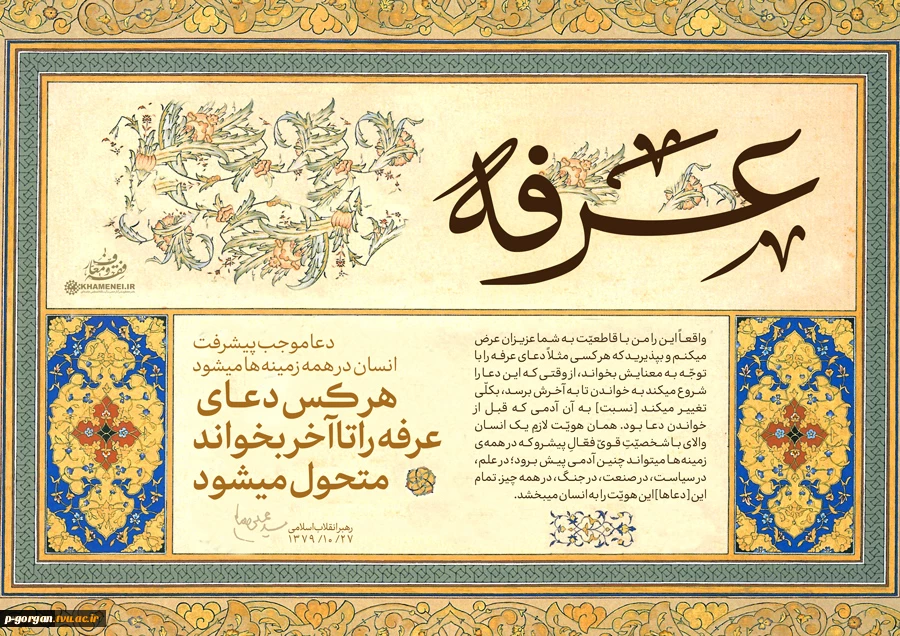 عرفه
فقه و معارف
KHAMENEI.IR
واقعاً این را من با قاطعیّت به شما عزیزان عرض
میکنم و بپذیرید که هر کسی مثلاً دعای عرفه را با
توجّه به معنایش بخواند، از وقتی که این دعا را
شروع میکند به خواندن تا به آخرش برسد، بکلّی
تغییر میکند [نسبت] به آن آدمی که قبل از
خواندن دعا بود. همان هویّت لازمِ یک انسان
والای با شخصیّتِ قویّ فعّالِ پیشرو که در همه‌ی
زمینه‌ها میتواند چنین آدمی پیش برود؛ در علم،
در سیاست، در صنعت، در جنگ، در همه چیز. تمام
این [دعاها] این هویّت را به انسان میبخشد.
دعا موجب پیشرفت
انسان در همه زمینه‌ها میشود
هر کس دعای
عرفه را تا آخر بخواند
متحول میشود
رهبر انقلاب اسلامی
۱۳۷۹/۱۰/۲۷
p-gorgan.tvu.ac.ir